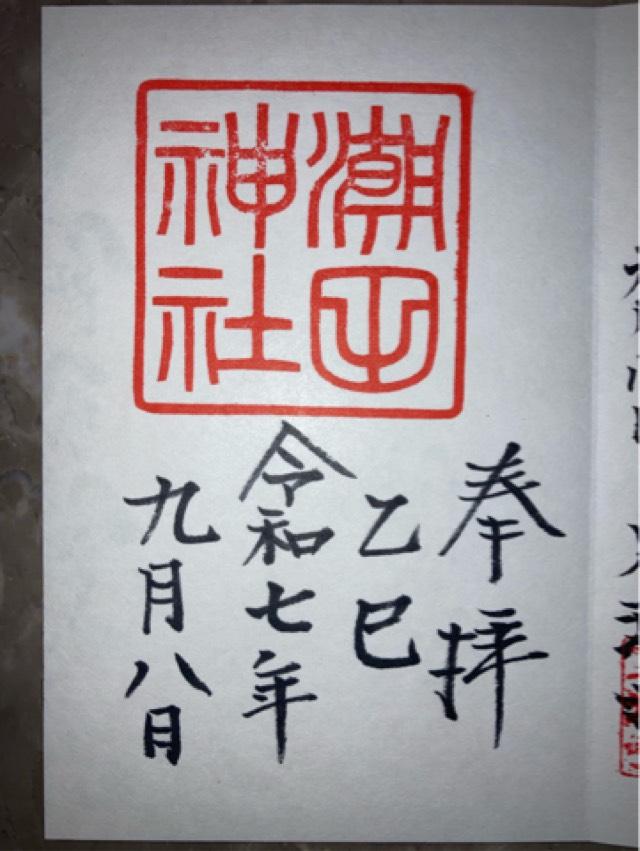 潮田
神社
奉拝
乙巳
令和七年
九月八日